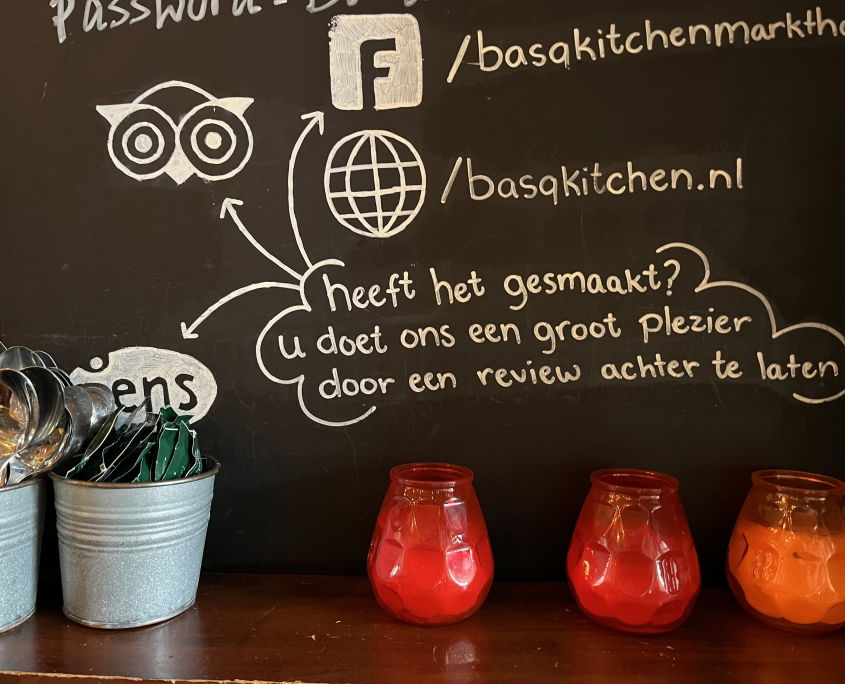 Password -
/basqkitchenmarktha
/basqkitchen.nl
heeft het gesmaakt?
u doet ons een groot plezier
door een review achter te laten
iens